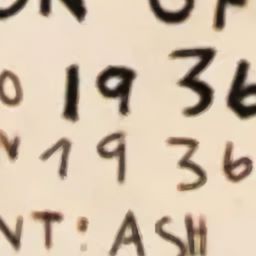 ON OF
0 1936
N 1936
NT: ASH